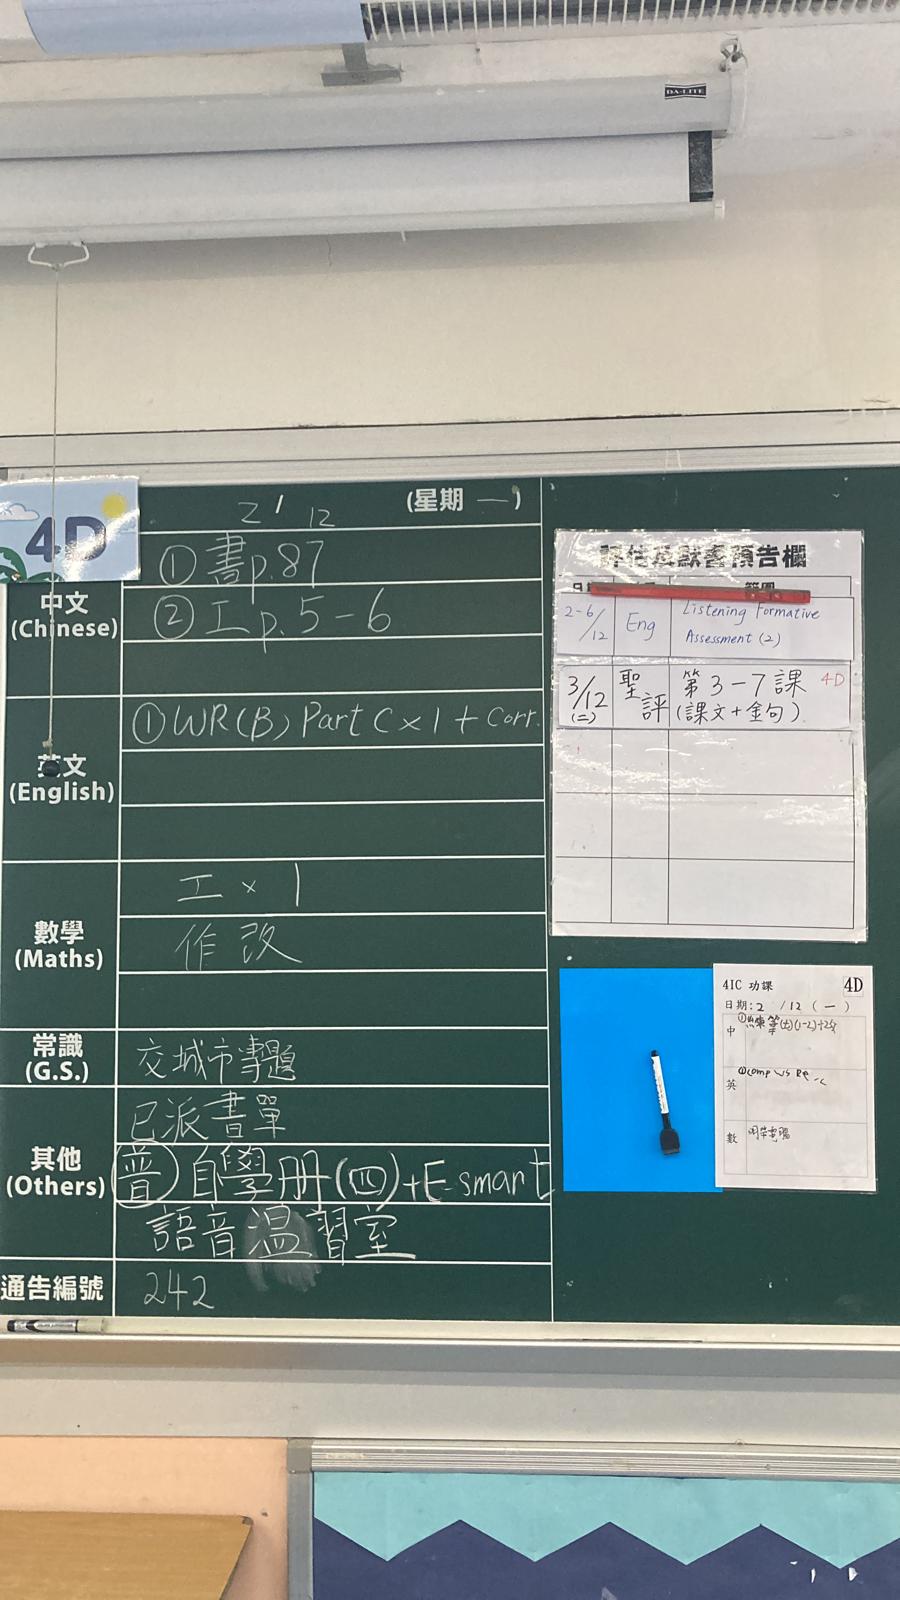 DA-LITE
4D
2/12 (星期一)
中文
(Chinese)
①書p.87
②工p.5-6
英文
(English)
①WR(B) Part C×1+Corr.
數學
(Maths)
工×1
作改
常識
(G.S.)
交城市專題
其他
(Others)
已派書單
(普)自學冊(四)+E-smart
語音溫習室
通告編號
242
評估及默書預告欄
範圍
2-6/12 Eng Listening Formative
Assessment (2)
3/12 (二) 聖評 第3-7課 4D
(課文+金句)
4IC 功課 4D
日期:2/12(一)
中
英 ①comp
數 明帶電腦